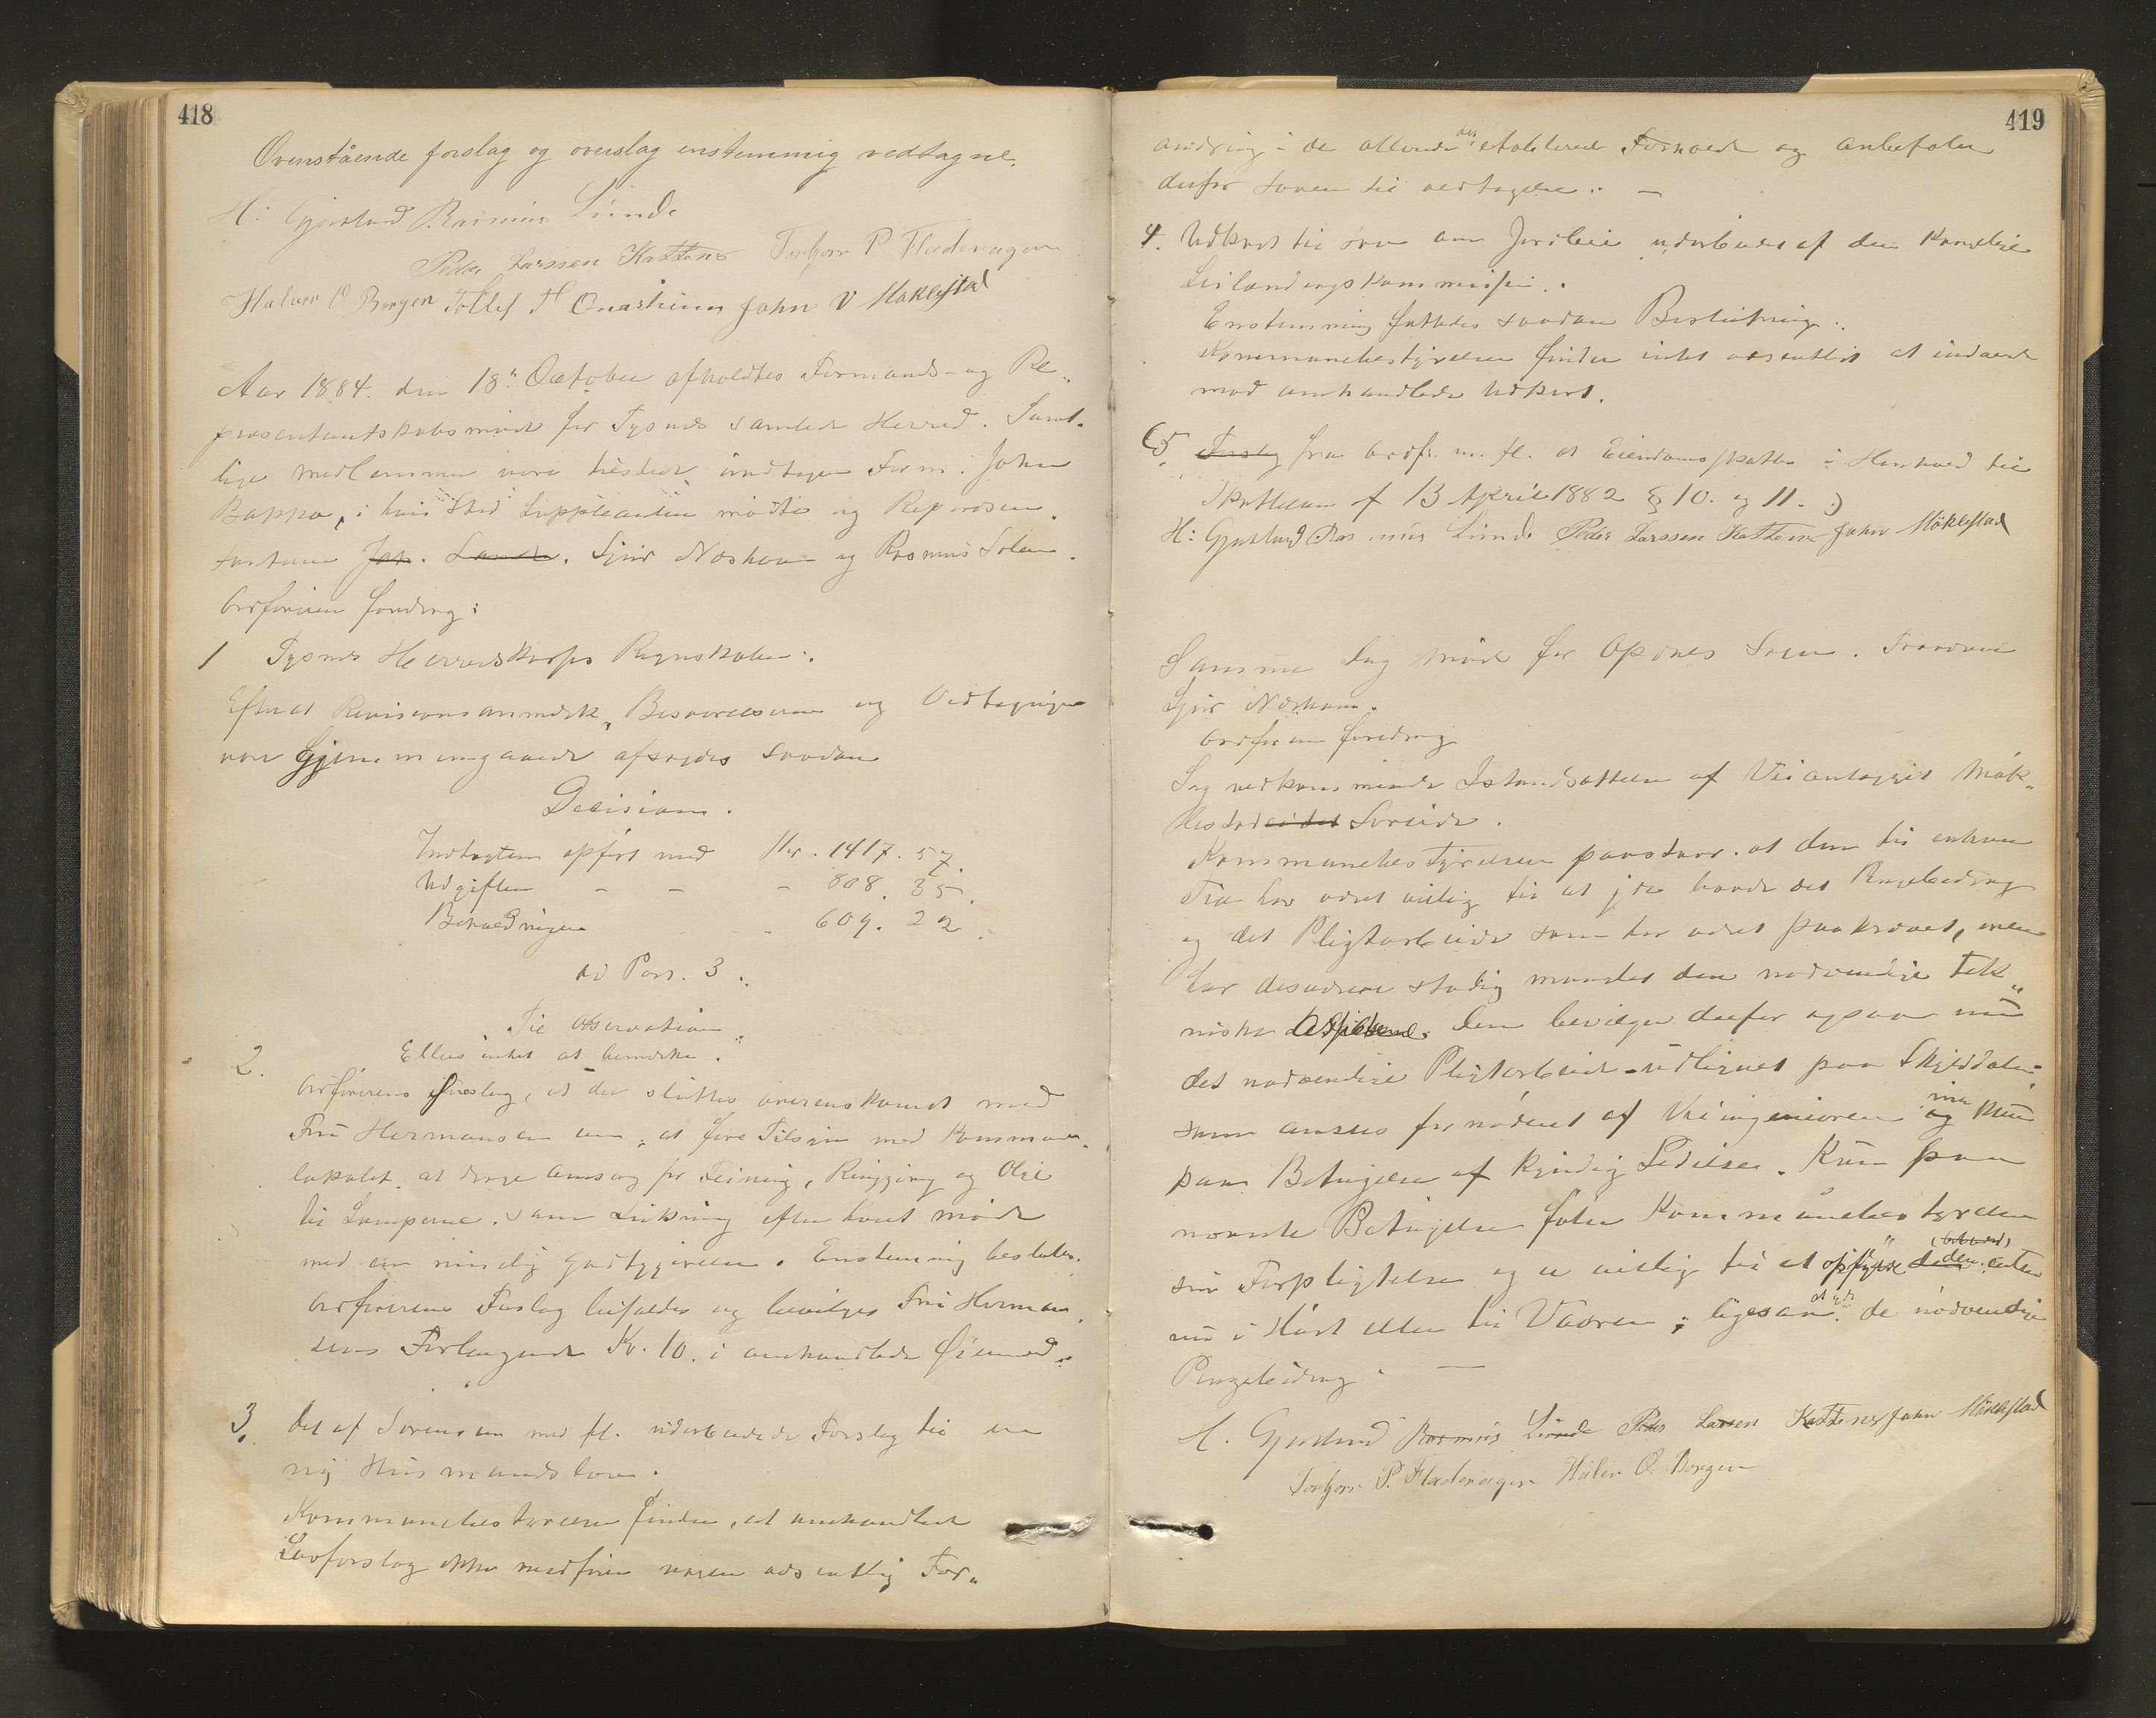 418
Ovenstående forslag og overslag enstemmig vedtagne.
H: Gjerstad Rasmus Lunde
Peder Larssen Kattenes Torbjørn P. Fladeragen
Halvor O Borgen Tollef T Onarheim John V Møklestad
Aar 1884. den 18de October afholdtes Formands- og Re-
præsentantskabsmøde for Tysnes samlede Herred. Samt-
lige medlemmer vare tilstede undtagen Form. John
Bakka, i hvis Sted Suppleanten mødte og Repræsen-
tanterne Joh. Lande. Sjur Neshavn og Rasmus Solem.
Ordføreren foredrog:
1 Tysnes Herredskasses Regnskaber.
Efterat Revisionsanmærk., Besvarelserne og Vedtegninger
vare Gjennemgaaede afsagdes saadan
Decision.
Indtægten opført med Kr. 1417. 57.
Udgiften - - - 808. 35.
Beholdningen - 609. 22.
ad Post. 3.
Til Observation.
Ellers intet at bemærke.
2. Ordførerens Forslag, at der sluttes overenskomst med
Fru Hermansen om, at føre Tilsyn med Kommune-
lokalet, at drage Omsorg for Feining, Ringging og Olie
til Lamperne, samt Lukning efter hvert møde
med en rimelig Godtgjørelse. Enstemmig besluttes:
Ordførerens Forslag bifaldes og bevilges Fru Herman-
sens Forlangende Kr. 10. i omhandlede Øiemed.
3. Det af Sørensen med fl. udarbeidede Forslag til en
ny Husmandslov.
Kommunebestyrelsen finder, at omhandlede
Lovforslag ikke medfører nogen væsentlig For-
419
andring i de allerede etablerede Forhold og anbefaler
derfor Loven til vedtagelse. —
4. Udkast til Lov om Jordleie udarbeidet af den Kongelige
Leilændingskommission.
Enstemmig fattedes saadan Beslutning:
Kommunebestyrelsen finder intet væsentligt at indvende
mod omhandlede Udkast.
(5. Forslag fra Ordf. m. fl. at Eiendomsskatten i Henhold til
Skatteloven af 13 April 1882 § 10. og 11. -)
H: Gjerstad Rasmus Lunde Peder Larssen Kattenes John Møklestad
Samme Dag Møde for Opdals Sogn. Fraværende
Sjur Neshavn.
Ordføreren foredrog
Sag vedkommende Istandsættelse af Veianlægget Møk-
lestad Soreide.
Kommunebestyrelsen paastaar at den til enhver
Tid har været villig til at yde baade det Pengebidrag
og det Pligtarbeide som har været paakrævet, men
har desværre stadig manglet den nødvendige tek-
niske Den bevilger derfor ogsaa nu
det nødvendige Pligtarbeide udlignet paa Skylddaler
som ansees fornødent af Veiingeniøren og kun
paa Betingelse af kyndig Ledelse. Kun paa
nævnte Betingelse føler Kommunebestyrelsen
sin Forpligtelse og er villig til at opfylde den enten
nu i Høst eller til Vaaren, ligesom at yde de nødvendige
Pengebidrag. —
H. Gjerstad Rasmus Lunde Peder Larsen Kattenes John Møklestad
Torbjørn P. Fladeragen Halvor O. Borgen